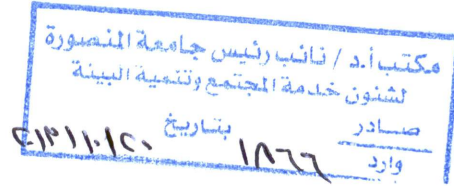 مكتب أ.د / نائب رئيس جامعة المنصورة
لشئون خدمة المجتمع وتنمية البيئة
صادر بتاريخ
وارد ١٨٦٦ ٢٠١٣/١٠/٢٠